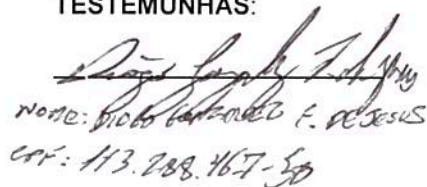 TESTEMUNHAS:
NOME: DIOGO F. DE JESUS
CPF: 113.288.467-50